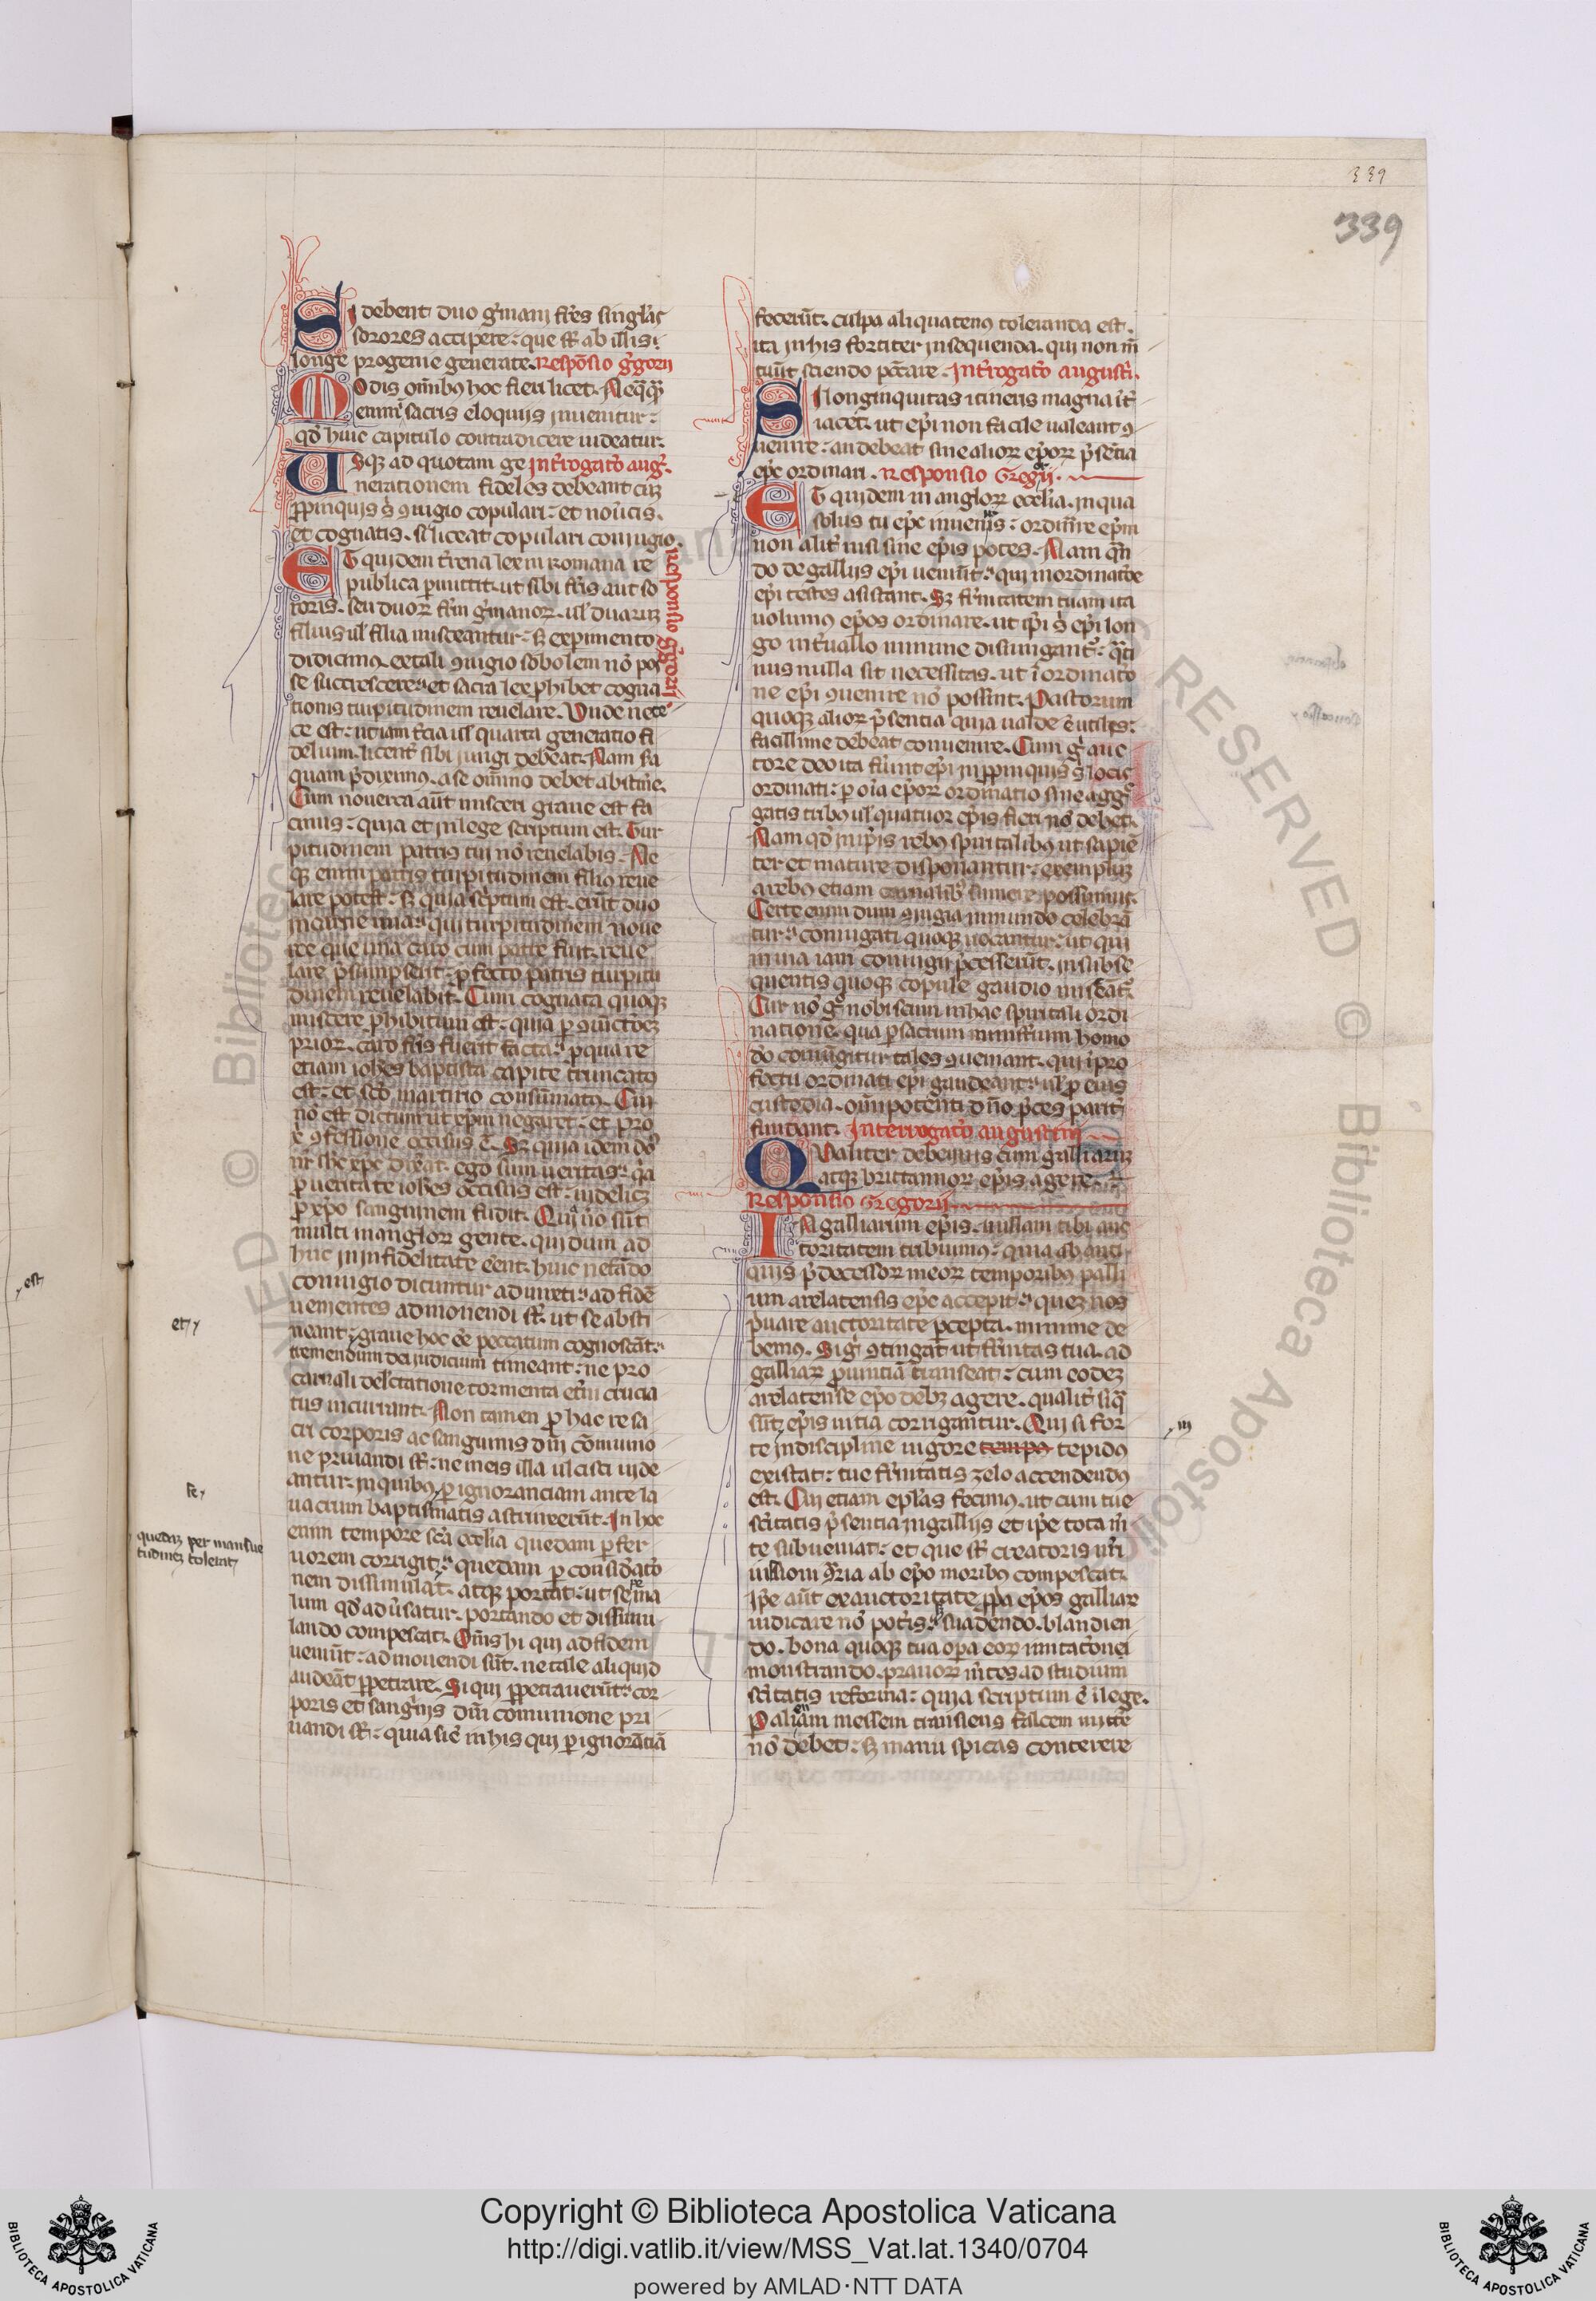 339
339
Si debent duo g̃mani fr̃es singl̃as
sorores accipere: que st̃ ab illis
longe progenie generate. Respõsio g̃gorii
Modis om̃ibus hoc fieri licet. Neq̃q̃
enim sacris eloquiis inuenitur:
qd̃ huic capitulo contradicere uideatur.
Usq; ad quotam ge Int̃rogatõ aug̃.
nerationem fideles debeant cũ
ꝓpinquis s̃ ꝯiugio copulari: et nouercis
et cognatis. si liceat copulari coniugio.
Responsio g̃gorii
Et quidem t̃rena lex in romana re
publica p̱mittit. ut siue fr̃is aut so
roris. seu duoꝝ fr̃m g̃manoꝝ. ul̃ duarum
filius ul̃ filia misceantur: sꝫ experimento
didicimus ex tali ꝯiugio sobolem nõ pos
se succrescere. et sacra lex ꝓhibet cogna
tionis turpitudinem reuelare. Unde nece
ce est. ut iam t̃cia ul̃ quarta generatio fi
delium. licent̃ sibi iungi debeat. Nam s̃a
quam p̃diximus. a se om̃ino debet abstin̄e.
Cum nouerca aũt misceri graue est fa
cinus: quia et in lege scriptum est. Tur
pitudinem patris tui nõ reuelabis. Ne
qꝫ enim patris turpitudinem filius reue
lare potest. sꝫ quia sc̃ptum est. erũt duo
in carne una. qui turpitudinem noue
rce que una caro cum patre fuit. reue
lare p̃sumpserit: ꝓfecto patris turpitu
dinem reuelabit. Cum cognata quoqꝫ
miscere ꝓhibitum est: quia ꝑ ꝯiunct̃oeꝫ
prior. caro fr̃is fuerit facta. ꝓ qua re
etiam ioh̃es baptista capite truncatus
est. et sc̃o martirio consũmatus. Cui
nõ est dictum ut xp̃m negaret. et pro
x̃ ꝯfessione occisus ẽ. Sꝫ quia idem dõ
nr̃ ih̃c xp̃c dixerat. ego sum ueritas. q̃a
ꝓ ueritate ioh̃es occisus est: uidelicet
ꝓ xp̃o sanguinem fudit. Quia ũo sũt
multi in angloꝝ gente. qui dum ad
huc in infidelitate eẽnt. huic nefãdo
coniugio dicuntur admixti. ad fidẽ
uenientes admonendi st̃. ut se absti
neant. graue hoc eẽ peccatum cognoscãt.
tremendum dei iudicium timeant: ne pro
carnali delectatione tormenta et̃ni crucia
tus incurrant. Non tamen ꝓ hac re sa
cri corporis ac sanguinis dñi cõmunio
ne priuandi st̃: ne in eis illa ulcisci uide
antur. in quibus ꝑ ignoranciam ante la
uacrum baptismatis astrinxerũt. In hoc
enim tempore sc̃a eccl̃ia quedam ꝑ fer
uorem corrigit. quedam ꝑ considerat̃o
nem dissimulat. atqꝫ portat: ut sepe ma
lum qd̃ aduersatur. portando et dissimu
lando compescat. Om̃s hi qui ad fidem
ueniũt: admonendi sũt. ne tale aliquid
audeãt ꝑpetrare. Si qui ꝑpetrauerũt: cor
poris et sanguĩs dñi comunione pri
uandi st̃: quia sic̃ in his qui ꝑ ignorãtiã
est
et
Fe
quedaꝫ per mansue
tudineꝫ tolerat
fecerũt. culpa aliquatenus toleranda est.
ita in his fortiter insequenda. qui non m̃
tuũt sciendo pet̃care. Int̃rogatõ augustĩ.
Si longinquitas itineris magna int̃
iacet. ut ep̃i non facile ualeant ꝯ
uenire: an debeat sine alioꝝ ep̃oꝝ p̃sẽtia
ep̃c ordinari. Responsio Gregorii.
Et quidem in angloꝝ eccl̃ia. in qua
solus tu ep̃c inueniris: ordinare ep̃m
non alit̃ nisi sine ep̃is potes. Nam q̃n
do de galliis ep̃i ueniũt. qui in ordinat̃oe
ep̃i testes assistant. Sꝫ fr̃nitatem tuam ita
uolumus ep̃os ordinare. ut ip̃i s̃ ep̃i lon
go int̃uallo minime disiungant̃. q̃ti
nus nulla sit necessitas. ut ĩ ordinat̃o
ne ep̃i ꝯuenire nõ possint. Pastorum
quoqꝫ alioꝝ p̃sentia quia ualde ẽ utilis:
facillime debeat conuenire. Cum g̃ auc
tore deo ita fũint ep̃i in ꝓpinquis s̃ locis
ordinati: ꝑ oĩa ep̃oꝝ ordinatio sine agg̃
gatis tribus ul̃ quatuor ep̃is fieri nõ debet.
Nam qd̃ in ip̃is rebus spiritalibus ut sapiẽ
ter et mature disponantur: exemplum
a rebus etiam carnalib' sumere possumus.
Certe enim dum ꝯiugia in mundo celebrã
tur. coniugati quoqꝫ uocantur: ut qui
in uia iam coniugii p̃cesserũt. in subse
quentis quoqꝫ copule gaudio misceãt̃.
Cur nõ g̃ nobiscum in hac spiritali ordi
natione. qua ꝑ sacrum ministerium homo
dõ coniungitur tales ꝯueniant. qui ĩ pro
fectu ordinati ep̃i gaudeant. ul̃ ꝓ eius
custodia. om̃ipotenti dño p̃ces parit̃
fundant. Interrogat̃o augustini
Qualiter debemus cum galliarum
atqꝫ brittannioꝝ ep̃is agere.
Responsio Gregorii
In galliarum ep̃is. nullam tibi auc
toritatem tribuimus: quia ab anti
quis p̃decessoꝝ meoꝝ temporibus palli
um arelatensis ep̃c accepit. queꝫ nos
p̃uare auctoritate p̃cepta. minime de
bemus. Si g̃ ꝯtingat ut fr̃nitas tua. ad
galliaꝝ ꝓuintiã transeat: cum eodeꝫ
arelatense ep̃o debꝫ agere. qualit̃ siq̃
sũt ep̃is uitia corrigantur. Qui si for
te in discipline uigore tempo tepidus
existat: tue fr̃nitatis zelo accendendus
est. Cui etiam epl̃as fecimus. ut cum tue
sc̃itatis p̃sentia in galliis et ip̃e tota m̃
te subueniat: et que st̃ creatoris nr̃i
iussioni ꝯtraria ab ep̃o moribus compescat.
ip̃e aũt ex auctoritate ꝓp̃a ep̃os galliaꝝ
iudicare nõ pot̃is. suadendo. blandien
do. bona quoqꝫ tua op̃a eoꝝ imitat̃onei
monstrando. prauoꝝ m̃tes ad studium
sc̃itatis reforma: quia scriptum ẽ ĩ lege.
Per alienam messem transiens falcem mittere
nõ debet: sꝫ manu spicas conterere
in
© Biblioteca Apostolica Vaticana
Copyright © Biblioteca Apostolica Vaticana
http://digi.vatlib.it/view/MSS_Vat.lat.1340/0704
powered by AMLAD·NTT DATA
BIBLIOTECA APOSTOLICA VATICANA
BIBLIOTECA APOSTOLICA VATICANA